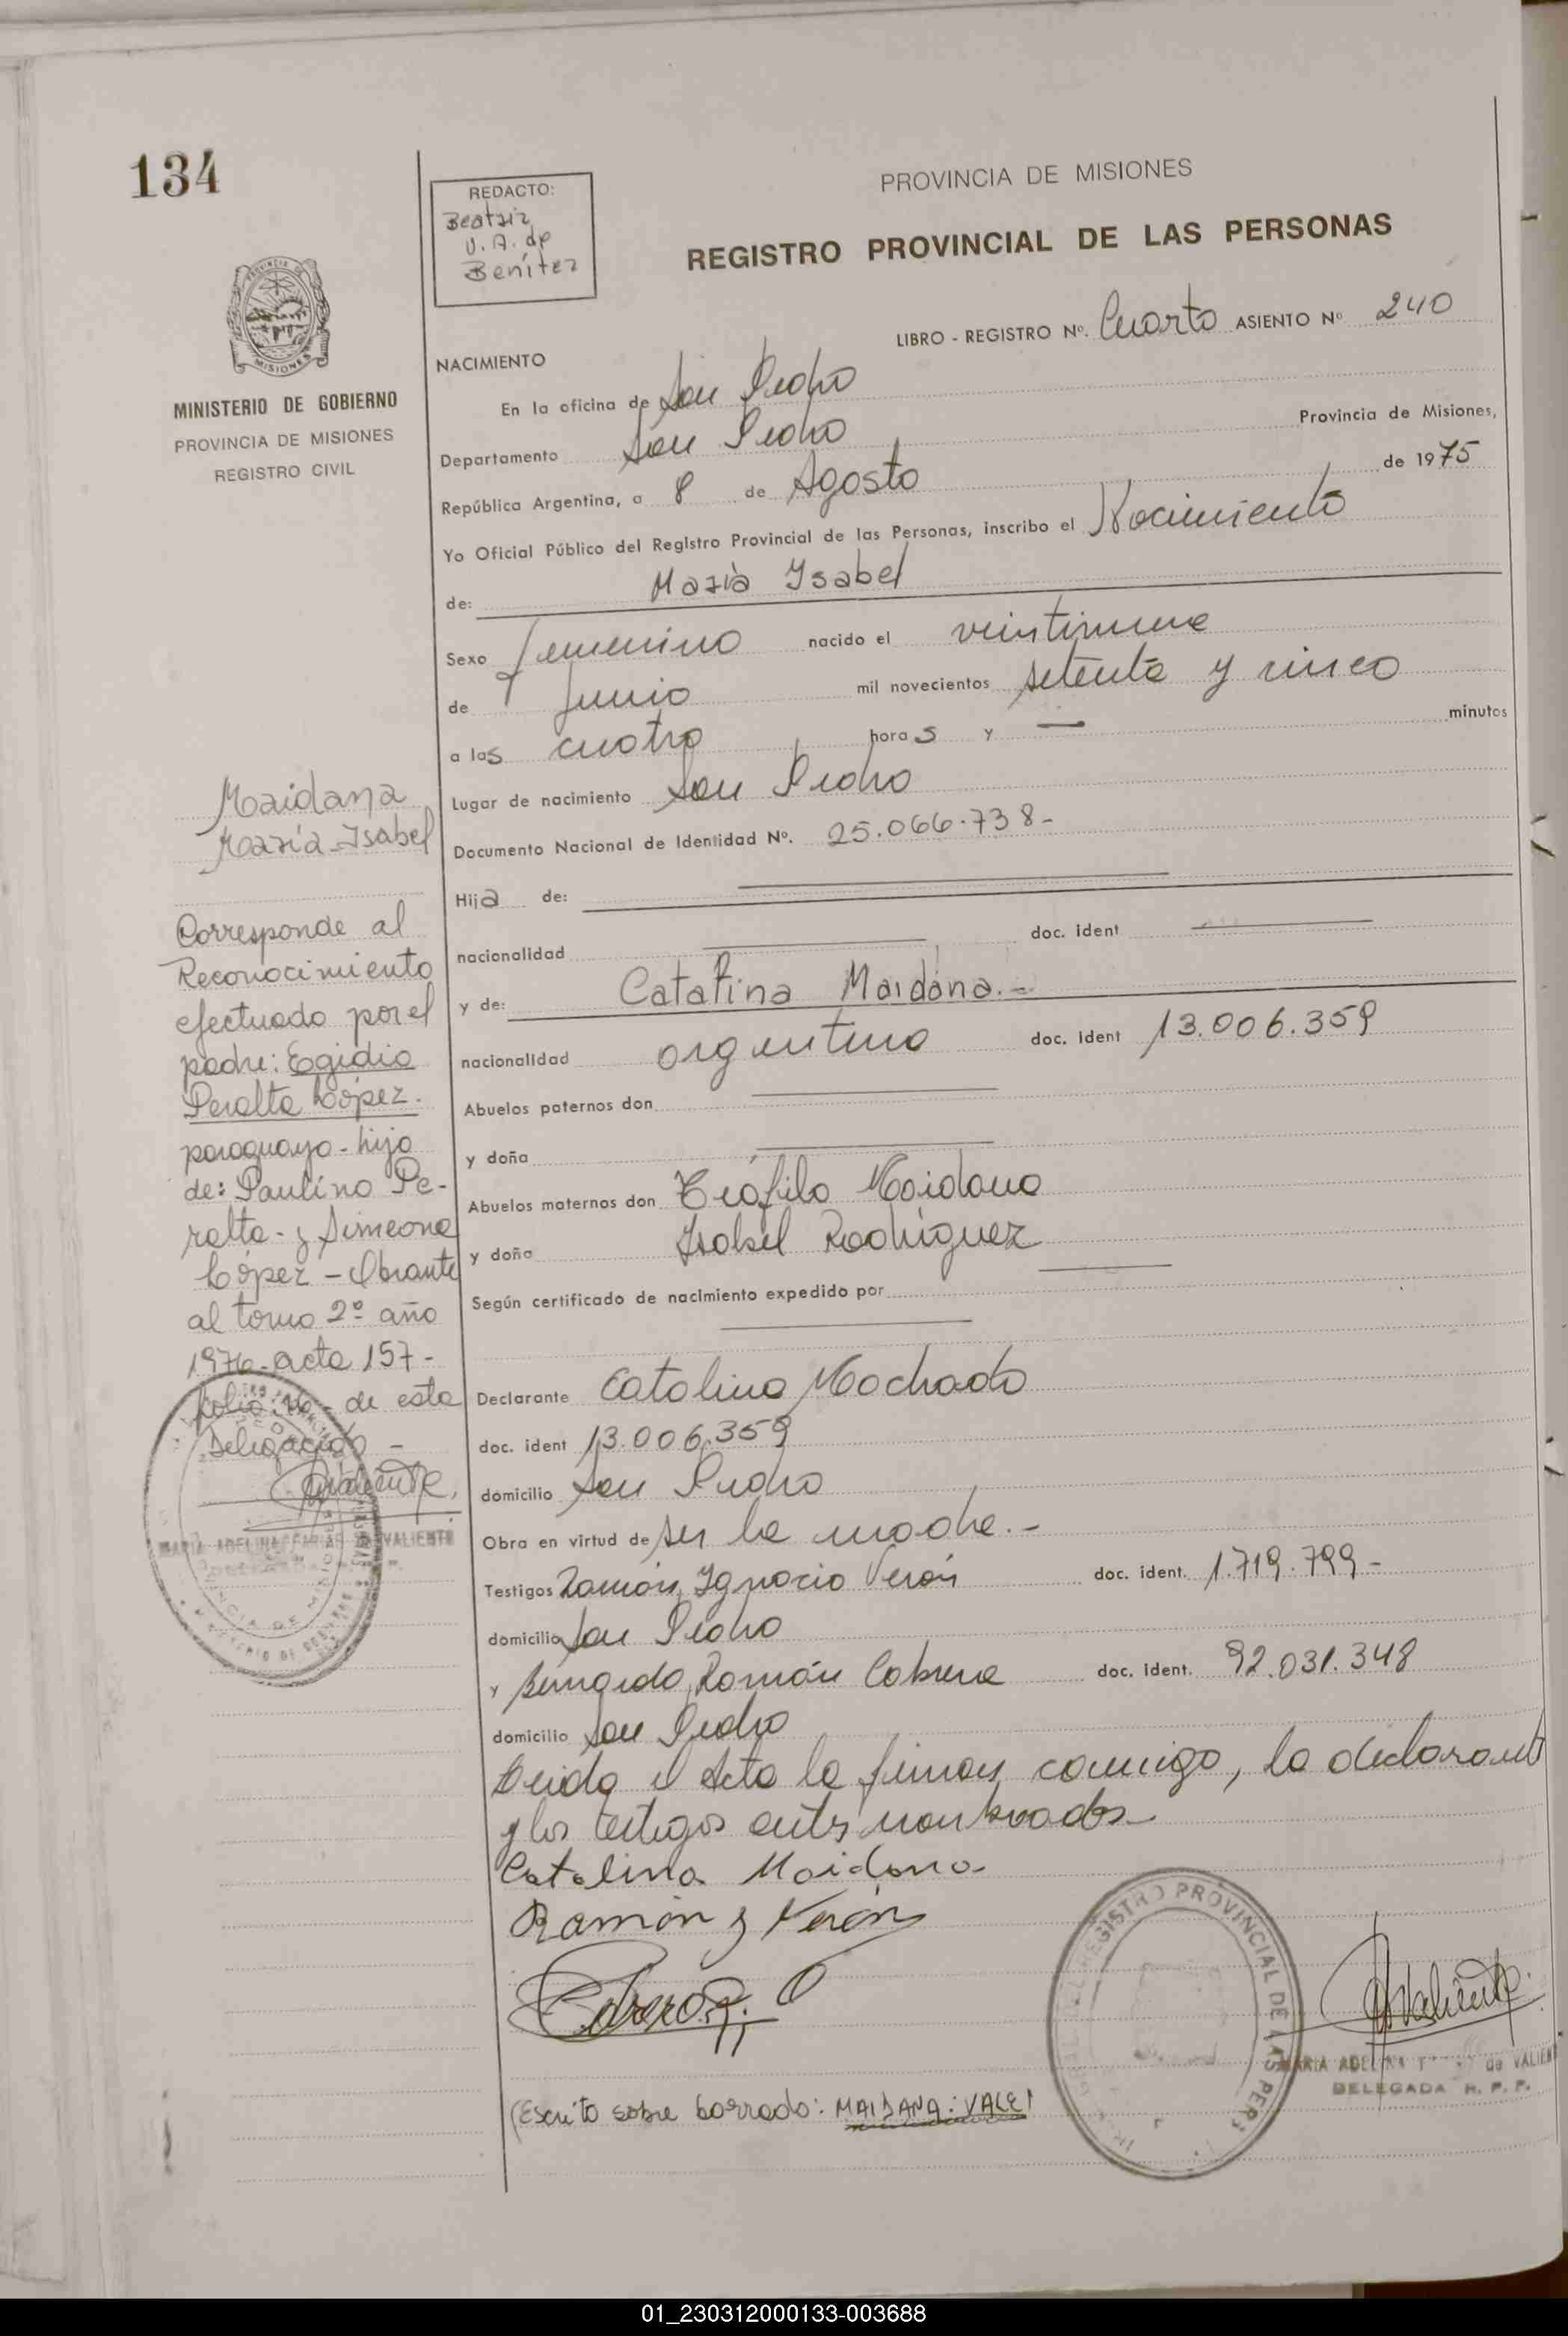 134
REDACTO:
Beatriz
V. A. de
Benítez
PROVINCIA DE MISIONES
REGISTRO PROVINCIAL DE LAS PERSONAS
LIBRO - REGISTRO Nº. Cuarto ASIENTO Nº 240
MINISTERIO DE GOBIERNO
PROVINCIA DE MISIONES
REGISTRO CIVIL
NACIMIENTO
En la oficina de San Pedro
Departamento San Pedro Provincia de Misiones,
República Argentina, a 8 de Agosto de 1975
Yo Oficial Público del Registro Provincial de las Personas, inscribo el Nacimiento
de: María Ysabel
Sexo femenino nacido el veintinueve
de Junio mil novecientos setenta y cinco
a las cuatro horas y — minutos
Lugar de nacimiento San Pedro
Documento Nacional de Identidad Nº. 25.066.738-
Hija de:
nacionalidad doc. ident
y de: Catalina Maidana.-
nacionalidad argentina doc. ident 13.006.359
Abuelos paternos don
y doña
Abuelos maternos don Teófilo Maidana
y doña Isabel Rodríguez
Según certificado de nacimiento expedido por
Declarante Catalina Machado
doc. ident 13.006.359
domicilio San Pedro
Obra en virtud de ser la madre.-
Testigos Ramón Ignacio Verón doc. ident. 1.719.799-
domicilio San Pedro
y Bernardo Román Cabrera doc. ident. 92.031.348
domicilio San Pedro
Leida el Acta la firman conmigo, la declarante
y los testigos antes nombrados-
Catalina Maidana
Ramón y Verón
Cabrera R.
(Escrito sobre borrado: MAIDANA: VALE)
Maidana
María Isabel
Corresponde al
Reconocimiento
efectuado por el
padre: Egidio
Peralta López.
paraguayo - hijo
de: Paulino Pe-
ralta - y Simeona
López - Obrante
al tomo 2º año
1976 - acta 157 -
folio: - de esta
Delegación -
AValiente
MARIA ADELINA FARIAS de VALIENTE
REGISTRO PROVINCIAL DE LAS PERS
AValiente
MARIA ADELINA de VALIENTE
DELEGADA R. P. P.
01_230312000133-003688